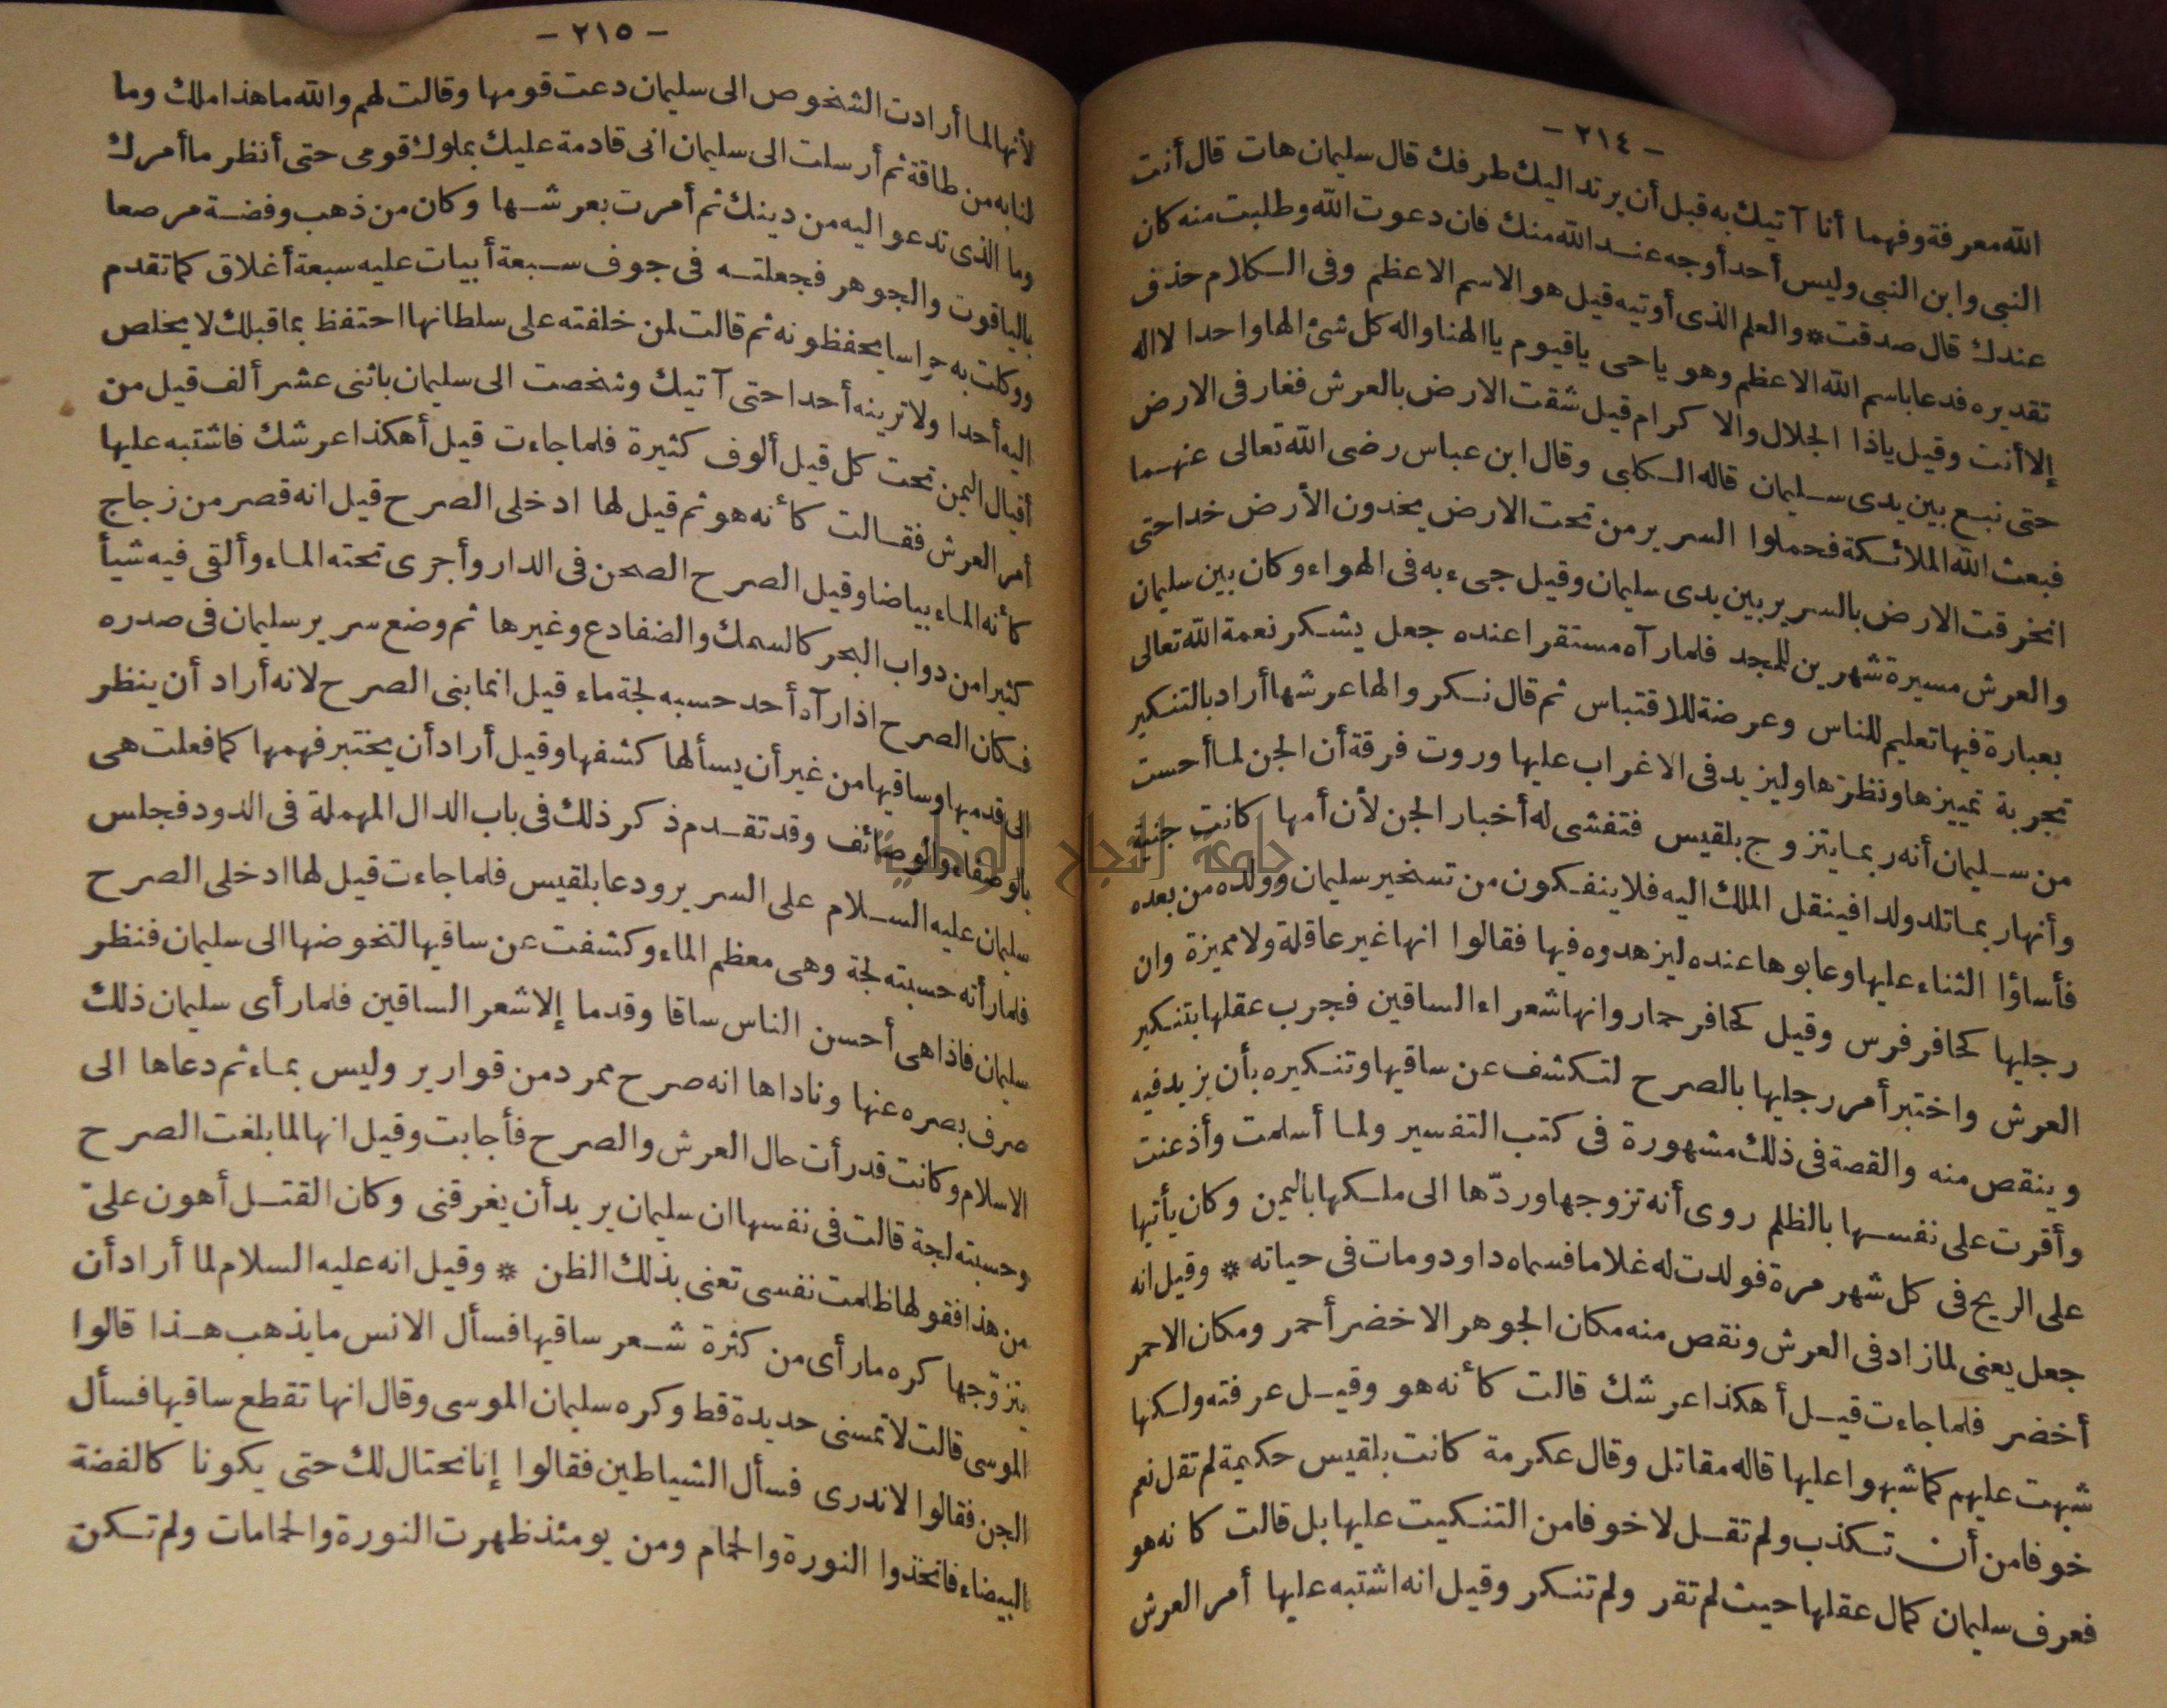 - ٢١٤ -
الله معرفة وفهما أنا آتيك به قبل أن يرتد اليك طرفك قال سليمان هات قال أنت
النبى وابن النبى وليس أحد أوجه عند الله منك فان دعوت الله وطلبت منه كان
عندك قال صدقت * والعلم الذى أوتيه قيل هو الاسم الاعظم وفى الكلام حذف
تقديره فدعا باسم الله الاعظم وهو ياحى ياقيوم يا الهنا واله كل شئ الها واحدا لا اله
إلا أنت وقيل ياذا الجلال والاكرام قيل شقت الارض بالعرش فغار فى الارض
حتى نبع بين يدى سليمان قاله الكلبى وقال ابن عباس رضى الله تعالى عنهما
فبعث الله الملائكة فحملوا السرير من تحت الارض يخدون الأرض خدا حتى
انخرقت الارض بالسرير بين يدى سليمان وقيل جىء به فى الهواء وكان بين سليمان
والعرش مسيرة شهرين للمجد فلما رآه مستقرا عنده جعل يشكر نعمة الله تعالى
بعبارة فيها تعليم للناس وعرضة للاقتباس ثم قال نكروا لها عرشها أراد بالتنكير
تجربة تمييزها ونظرها وليزيد فى الاغراب عليها وروت فرقة أن الجن لما أحست
من سليمان أنه ربما يتزوج بلقيس فتفشى له أخبار الجن لأن أمها كانت جنية
وأنها ربما تلد ولدا فينقل الملك اليه فلا ينفكون من تسخير سليمان وولده من بعده
فأساؤا الثناء عليها وعابوها عنده ليزهدوه فيها فقالوا انها غير عاقلة ولا مميزة وان
رجليها كحافر فرس وقيل كحافر حمار وانها شعراء الساقين فجرب عقلها بتنكير
العرش واختبر أمر رجليها بالصرح لتكشف عن ساقيها وتنكيره بأن يزيد فيه
وينقص منه والقصة فى ذلك مشهورة فى كتب التفسير ولما أسلمت وأذعنت
وأقرت على نفسها بالظلم روى أنه تزوجها وردّها الى ملكها باليمن وكان يأتيها
على الريح فى كل شهر مرة فولدت له غلاما فسماه داود ومات فى حياته * وقيل انه
جعل يعنى لما زاد فى العرش ونقص منه مكان الجوهر الاخضر أحمر ومكان الاحمر
أخضر فلما جاءت قيل أهكذا عرشك قالت كأنه هو وقيل عرفته ولكنها
شبهت عليهم كما شبهوا عليها قاله مقاتل وقال عكرمة كانت بلقيس حكيمة لم تقل نعم
خوفا من أن تكذب ولم تقل لا خوفا من التنكيت عليها بل قالت كانه هو
فعرف سليمان كمال عقلها حيث لم تقر ولم تنكر وقيل انه اشتبه عليها أمر العرش
- ٢١٥ -
لأنها لما أرادت الشخوص الى سليمان دعت قومها وقالت لهم والله ما هذا ملك وما
لنا به من طاقة ثم أرسلت الى سليمان انى قادمة عليك بملوك قومى حتى أنظر ما أمرك
وما الذى تدعو اليه من دينك ثم أمرت بعرشها وكان من ذهب وفضة مرصعا
بالياقوت والجوهر فجعلته فى جوف سبعة أبيات عليه سبعة أغلاق كما تقدم
ووكلت به حراسا يحفظونه ثم قالت لمن خلفته على سلطانها احتفظ بما قبلك لا يخلص
اليه أحدا ولا ترينه أحدا حتى آتيك وشخصت الى سليمان باثنى عشر ألف قيل من
أقيال اليمن تحت كل قيل ألوف كثيرة فلما جاءت قيل أهكذا عرشك فاشتبه عليها
أمر العرش فقالت كأنه هو ثم قيل لها ادخلى الصرح قيل انه قصر من زجاج
كأنه الماء بياضا وقيل الصرح الصحن فى الدار وأجرى تحته الماء وألقى فيه شيأ
كثيرا من دواب البحر كالسمك والضفادع وغيرها ثم وضع سرير سليمان فى صدره
فكان الصرح اذا رآه أحد حسبه لجة ماء قيل انما بنى الصرح لانه أراد أن ينظر
الى قدميها وساقيها من غير أن يسألها كشفها وقيل أراد أن يختبر فهمها كما فعلت هى
بالوصفاء والوصائف وقد تقدم ذكر ذلك فى باب الدال المهملة فى الدود فجلس
سليمان عليه السلام على السرير ودعا بلقيس فلما جاءت قيل لها ادخلى الصرح
فلما رأته حسبته لجة وهى معظم الماء وكشفت عن ساقيها لتخوضها الى سليمان فنظر
سليمان فاذا هى أحسن الناس ساقا وقدما إلا شعر الساقين فلما رأى سليمان ذلك
صرف بصره عنها وناداها انه صرح ممرد من قوارير وليس بماء ثم دعاها الى
الاسلام وكانت قد رأت حال العرش والصرح فأجابت وقيل انها لما بلغت الصرح
وحسبته لجة قالت فى نفسها ان سليمان يريد أن يغرقنى وكان القتل أهون علىّ
من هذا فقولها ظلمت نفسى تعنى بذلك الظن * وقيل انه عليه السلام لما أراد أن
يتزوّجها كره ما رأى من كثرة شعر ساقيها فسأل الانس ما يذهب هذا قالوا
الموسى قالت لا تمسنى حديدة قط وكره سليمان الموسى وقال انها تقطع ساقيها فسأل
الجن فقالوا لا ندرى فسأل الشياطين فقالوا إنا نحتال لك حتى يكونا كالفضة
البيضاء فاتخذوا النورة والحمام ومن يومئذ ظهرت النورة والحمامات ولم تكن
جامعة النجاح الوطنية